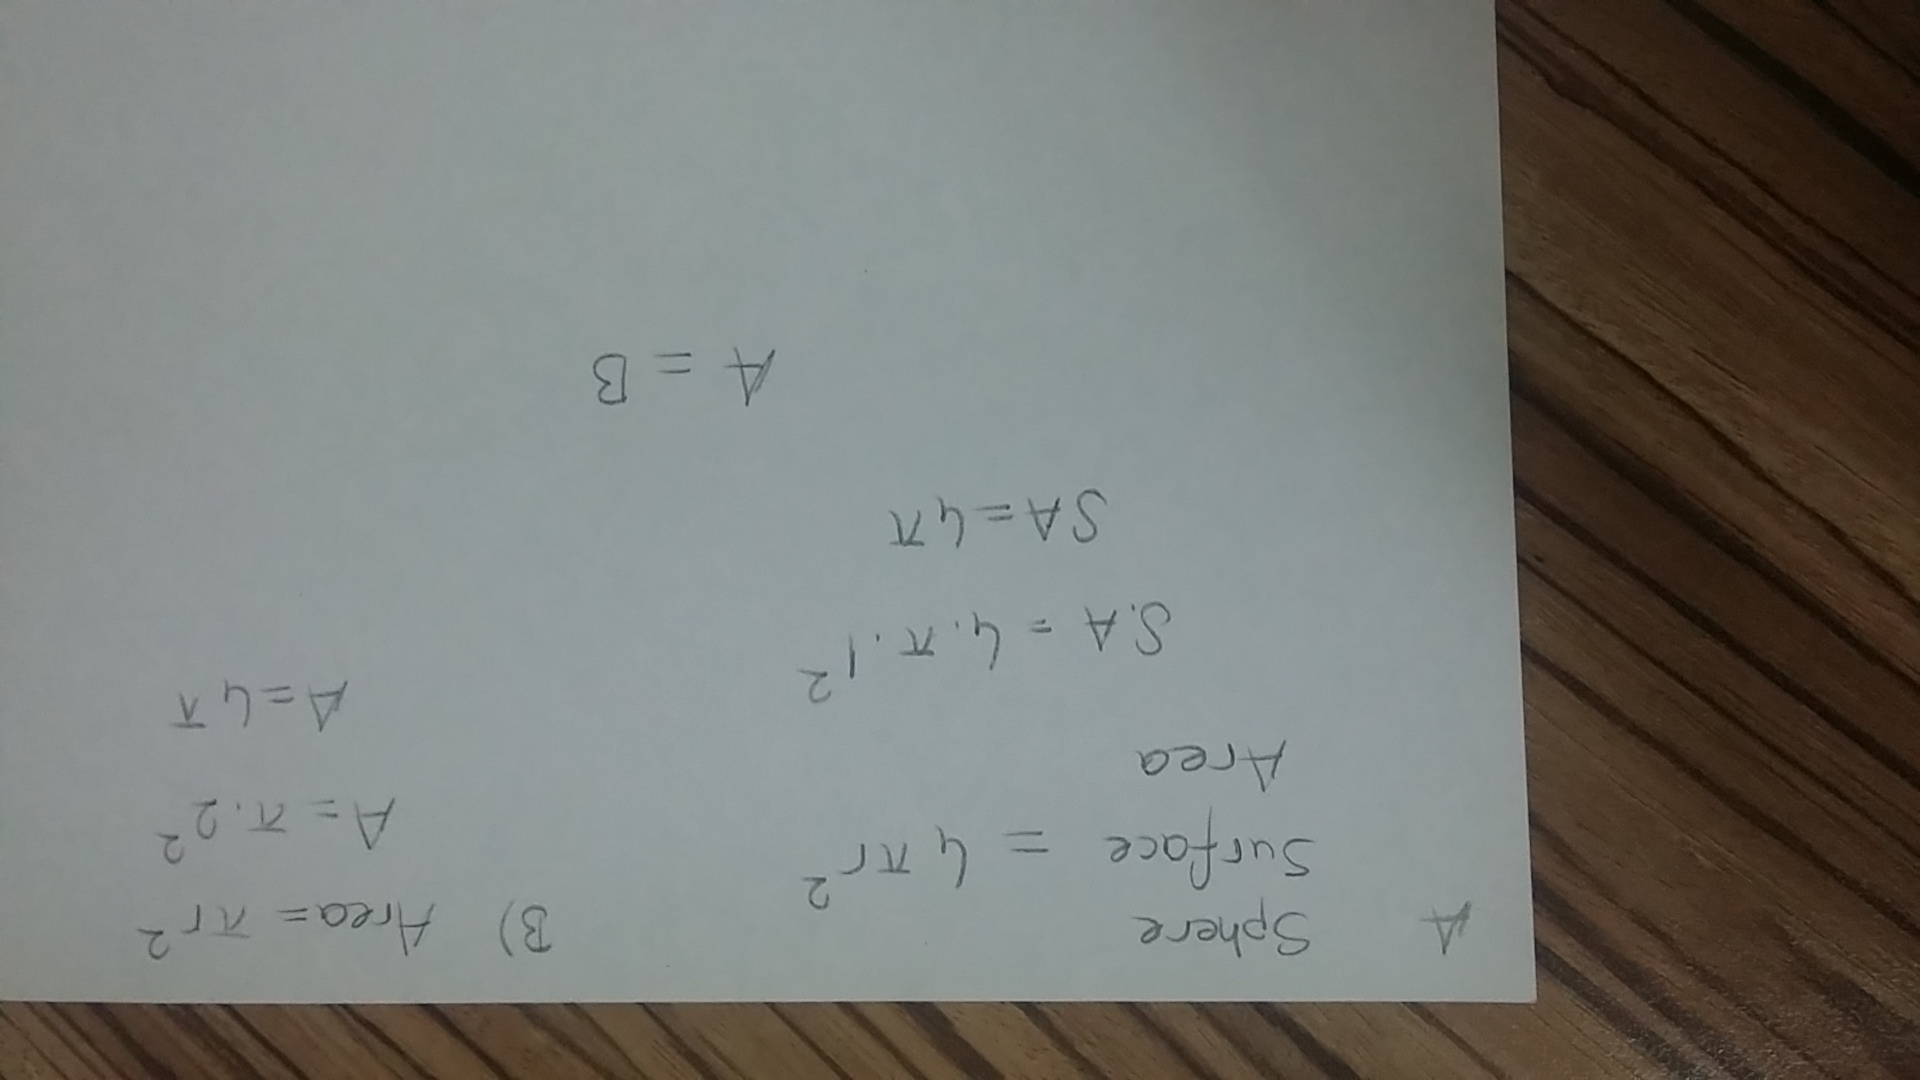 A Sphere
Surface = 4πr²
Area
S.A = 4.π.1²
SA = 4π
B) Area = πr²
A = π.2²
A = 4π
A = B